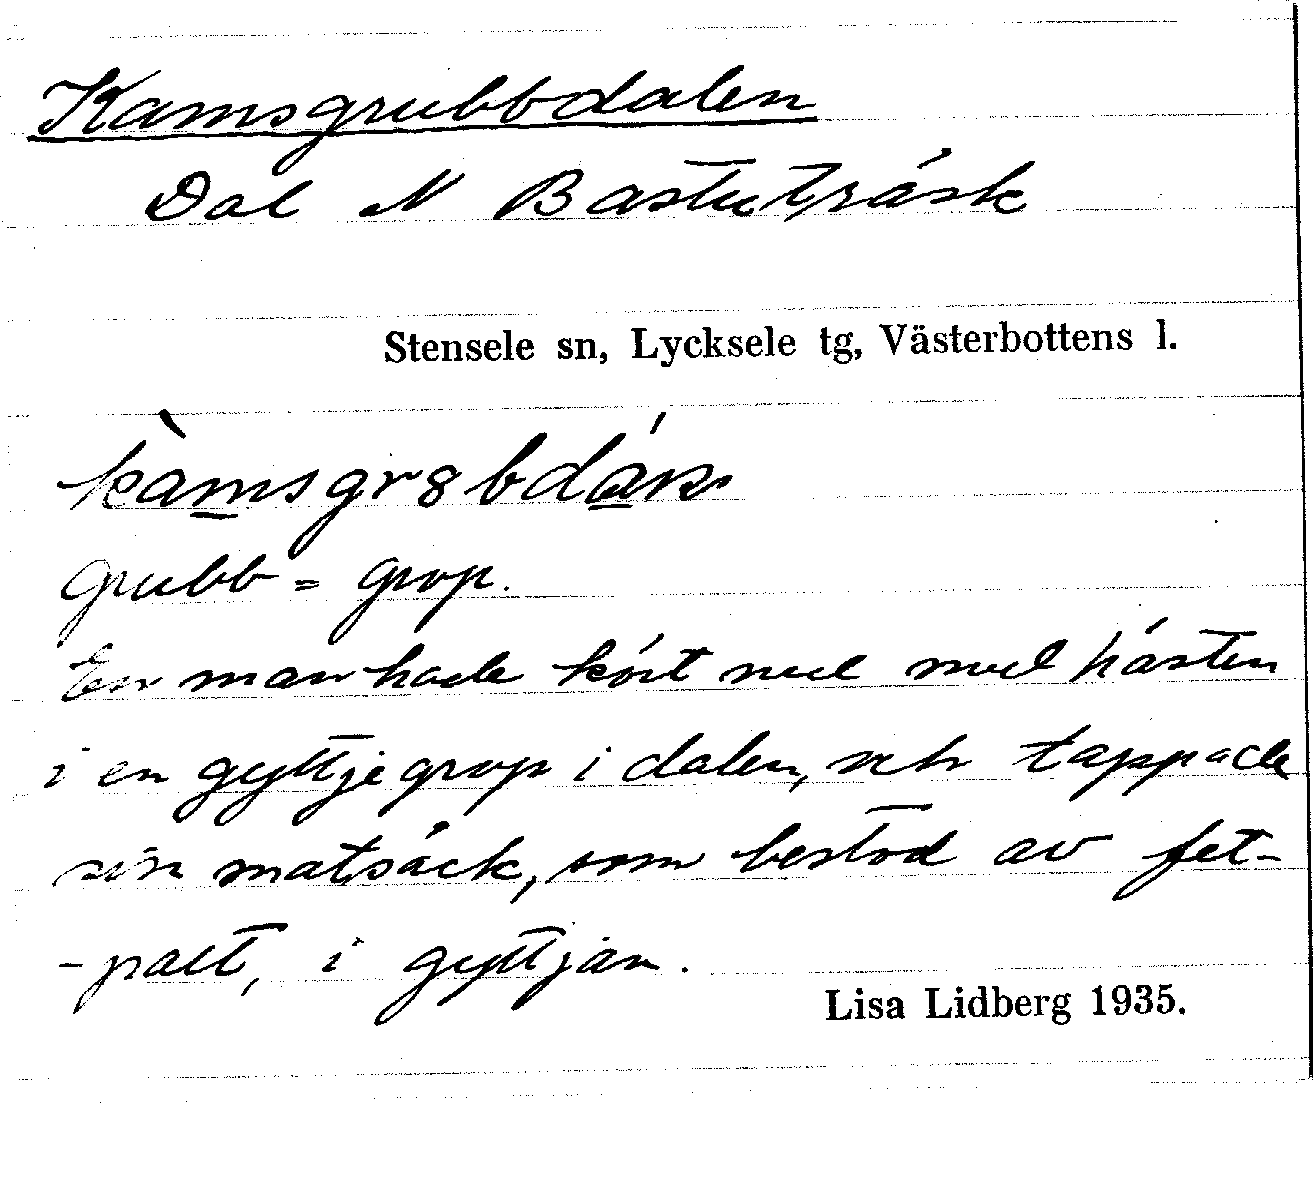 Kamsgrubbdalen
Dal N Bastuträsk
Stensele sn, Lycksele tg, Västerbottens l.
grubb = grop.
En man hade kört ned med hästen
i en gyttjegrop i dalen, och tappade
sin matsäck, som bestod av fet-
-palt, i gyttjan.
Lisa Lidberg 1935.